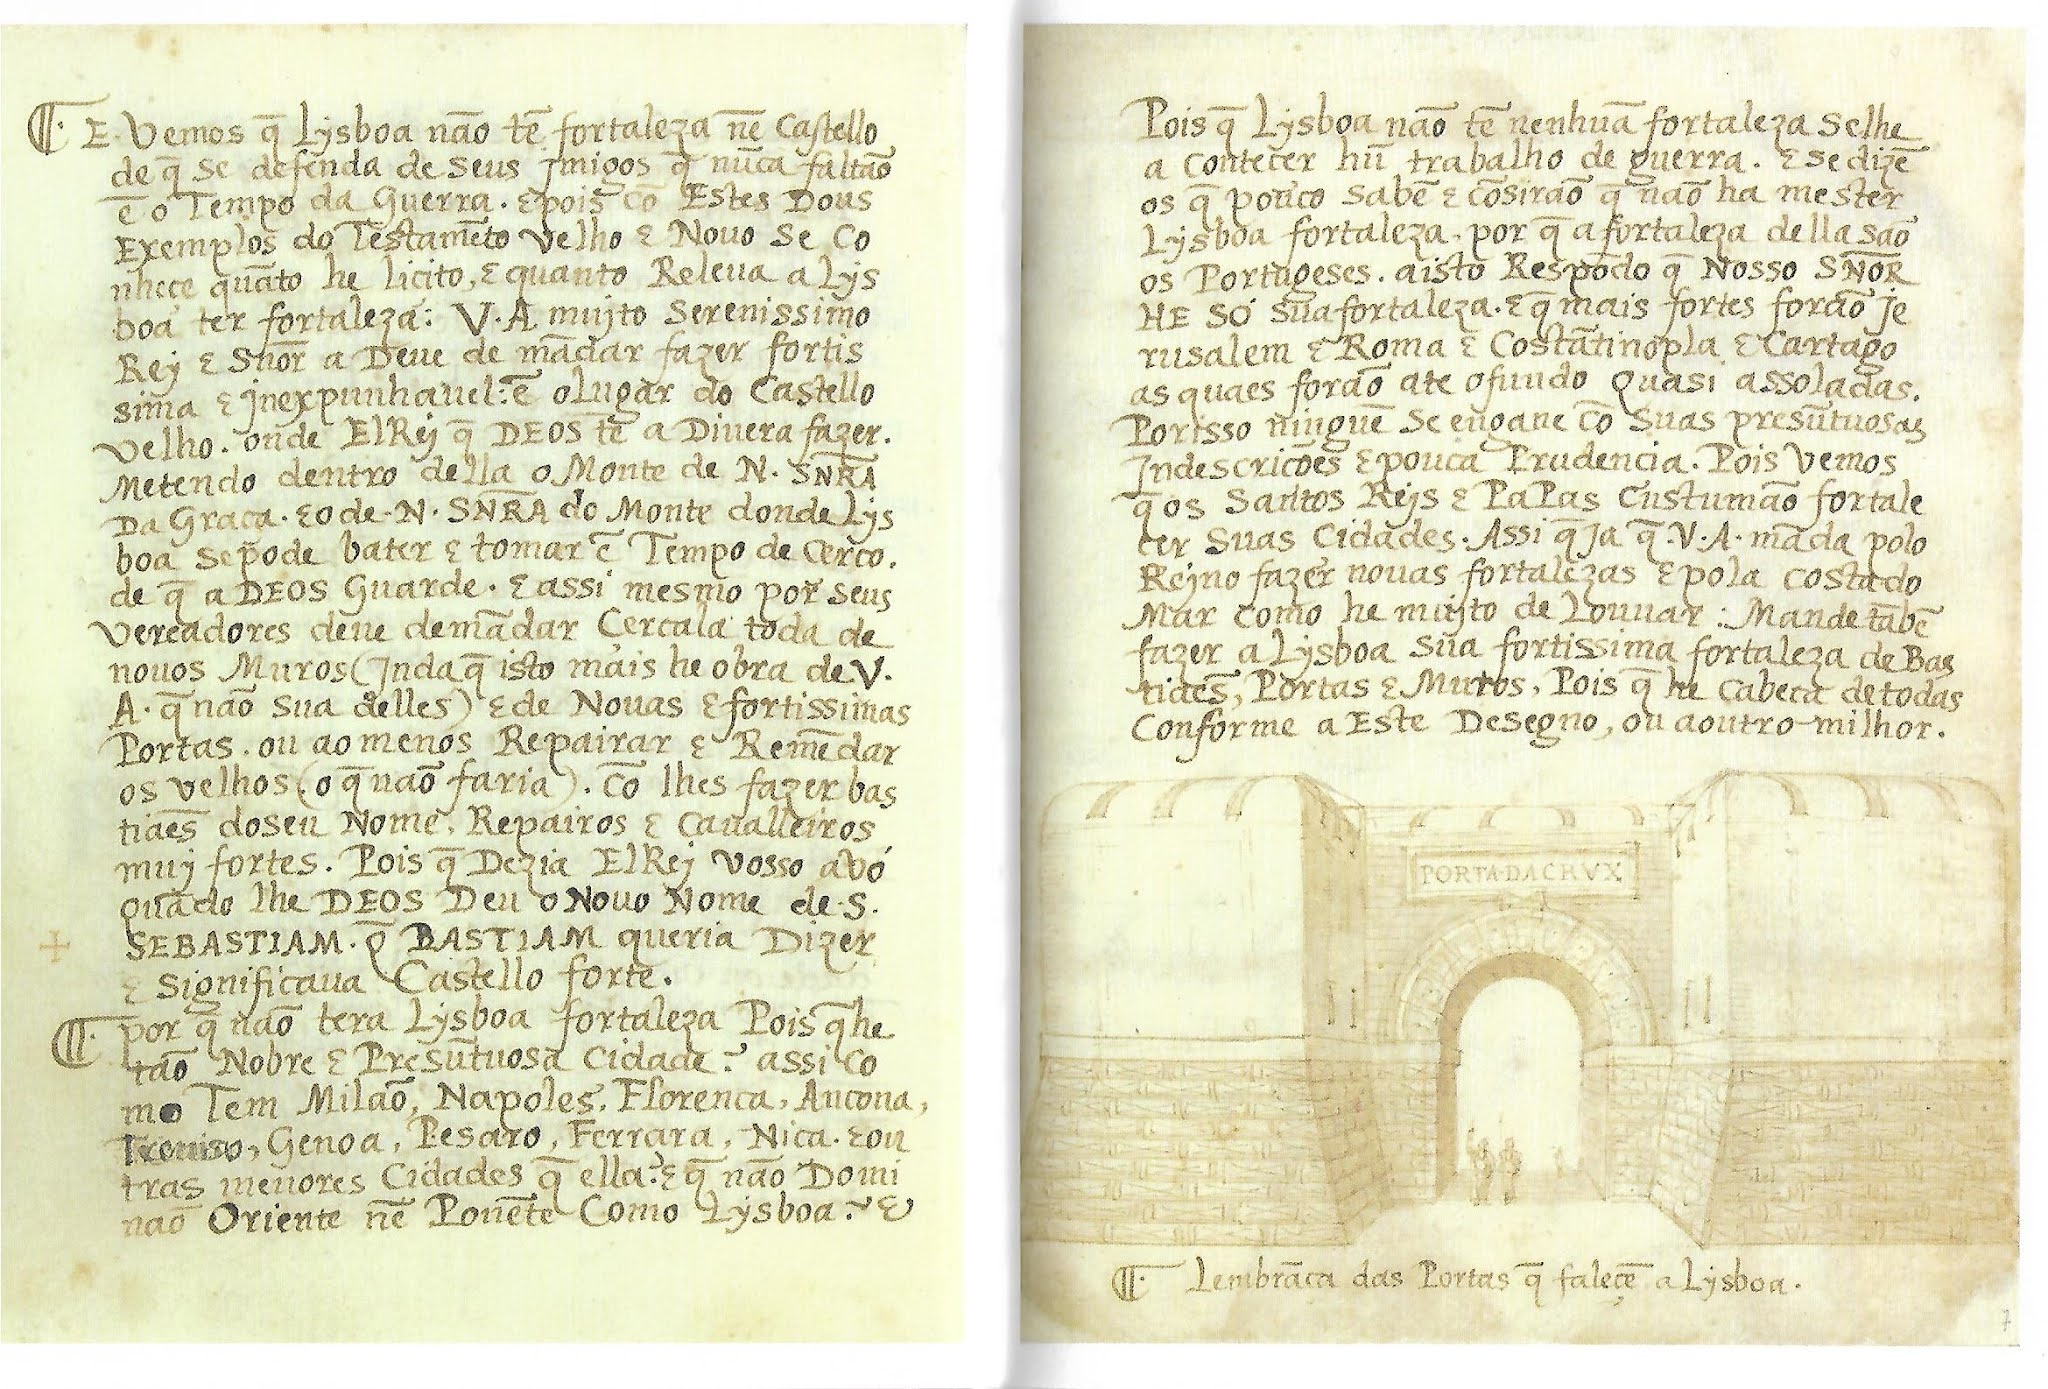 E. Vemos q̄ Lysboa não tē fortaleza nē Castello
de q̄ se defenda de seus Jmigos q̄ nūca faltão
ē o Tempo da Guerra. Epois cō Estes Dous
Exemplos do Testamēto velho E Novo se Co
nhece quāto he licito, E quanto Releua a Lys
boa ter fortaleza: V. A muyto Serenissimo
Rey E Sñor a Deue de mādar fazer fortis
sima E Jnexpunhauel: ē o Lugar do Castello
Velho. onde ElRey q̄ DEOS tē a Diuera fazer.
Metendo dentro della o Monte de N. SÑRA
Da Graca. E o de N. SÑRA do Monte donde Lys
boa se pode bater E tomar ē Tempo de Cerco.
de q̄ a DEOS Guarde. E assi mesmo por seus
Vereadores deue demādar Cercala toda de
nouos Muros (Jnda q̄ isto mais he obra de V.
A. q̄ não sua delles) E de Nouas E fortissimas
Portas. ou ao menos Repairar E Remēdar
os velhos (o q̄ não faria). Cō lhes fazer bas
tiães do seu Nome, Repairos E Caualleiros
muy fortes. Pois q̄ Dezia ElRey vosso avó
quādo lhe DEOS Deu o Nouo Nome de S.
SEBASTIAM. q̄ BASTIAM queria Dizer
E significaua Castello forte.
por q̄ não tera Lysboa fortaleza Pois q̄ he
tão Nobre E Presūtuosa Cidade? assi co
mo Tem Milão, Napoles, Florenca, Ancona,
Treuiso, Genoa, Pesaro, Ferrara, Nica. E ou
tras menores Cidades q̄ ella? E q̄ não Domi
não Oriente nē Ponēte Como Lysboa? E
Pois q̄ Lysboa não tē nenhuā fortaleza se lhe
a contecer hū trabalho de guerra. E se dizē
os q̄ pouco sabē E cōsirão q̄ não ha mester
Lysboa fortaleza. por q̄ a fortaleza della são
os Portugeses. a isto Respōdo q̄ Nosso SÑOR
HE SÓ sua fortaleza. E q̄ mais fortes forão Je
rusalem E Roma E Costātinopla E Cartago
as quaes forão ate o fundo quasi assoladas.
Por isso ninguē se engane cō suas presūtuosas
Jndescricões E pouca Prudencia. Pois vemos
q̄ os Santos Reys E PaPas Custumão fortale
cer suas Cidades. Assi q̄ Ja q̄ V. A. māda polo
Reyno fazer nouas fortalezas E pola costa do
Mar como he muyto de Louuar: Mande tābē
fazer a Lysboa sua fortissima fortaleza de Bas
tiães, Portas E Muros, Pois q̄ he Cabeca de todas
Conforme a Este Desegno, ou a outro milhor.
PORTA DA CRVX
Lembrāca das Portas q̄ faleçē a Lysboa.
7